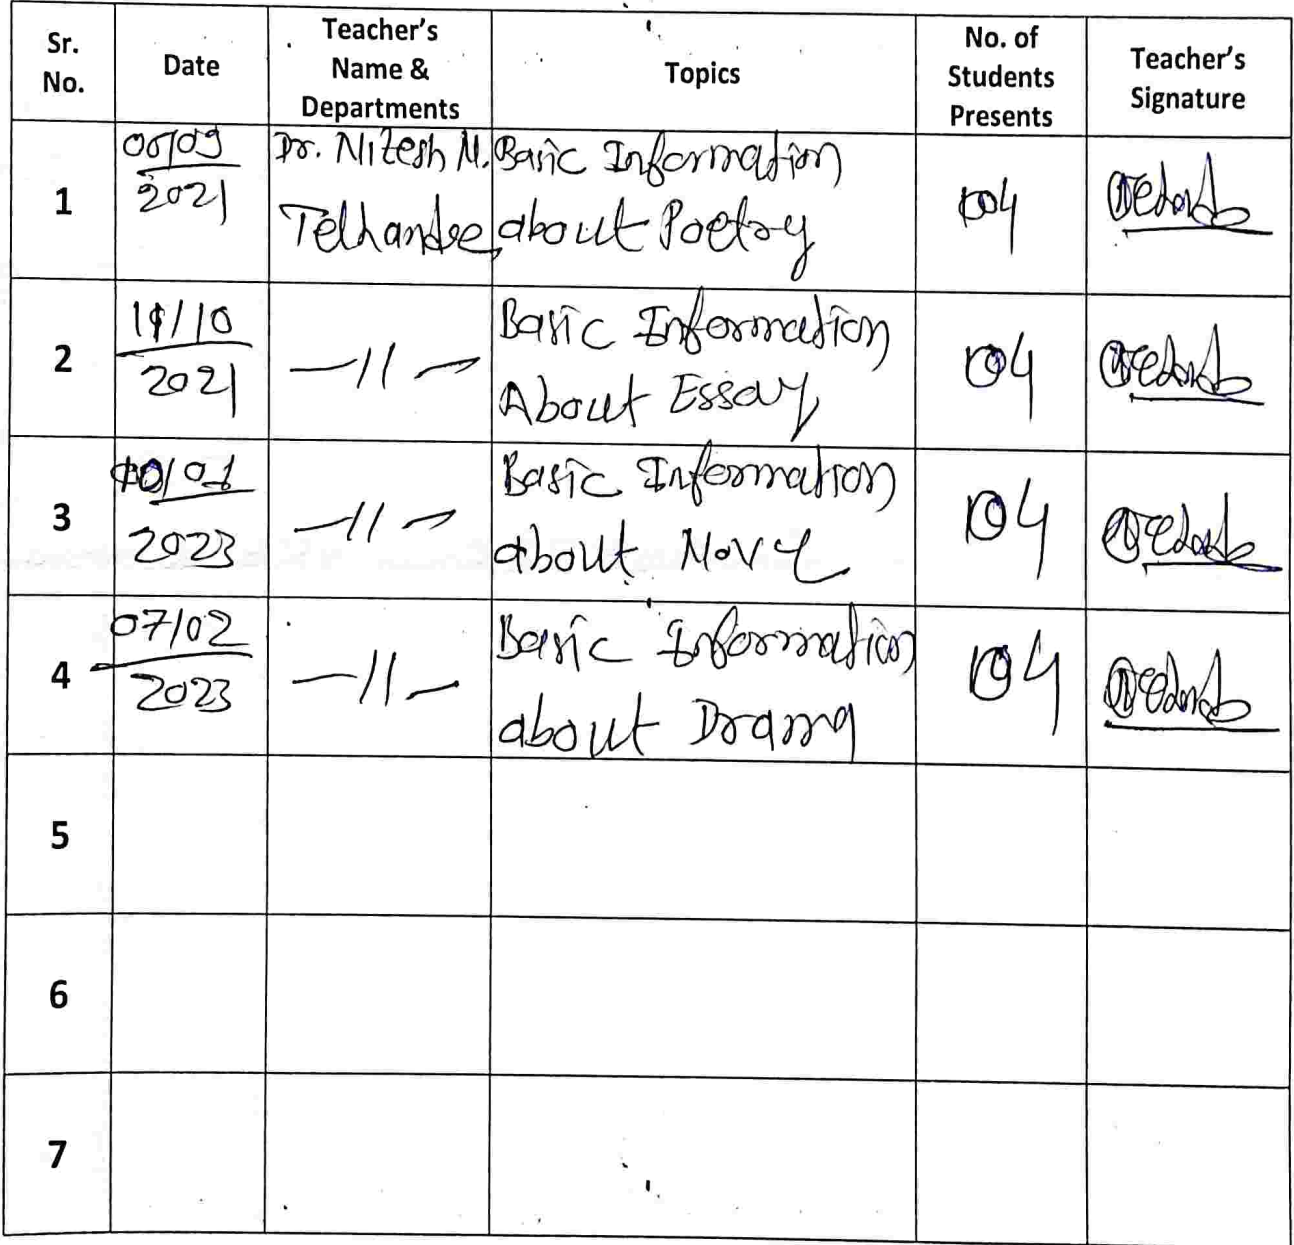 Sr. No. Date Teacher's Name & Departments Topics No. of Students Presents Teacher's Signature
1 2021 Dr. Nitesh M. Telhande, Basic Information about Poetry 04
2 /10 2021 —//— Basic Information About Essay 04
3 2023 —//— Basic Information about Novel 04
4 07/02 2023 —//— Basic Information about Drama 04
5
6
7